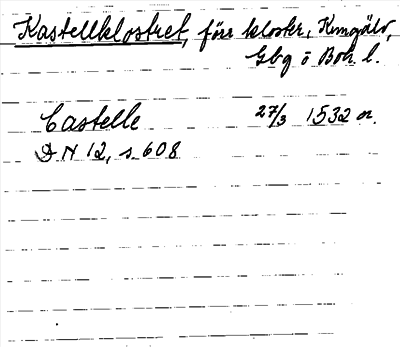 Kastellklostret, förr kloster, Kungälv,
Gbg o Boh. l.
Castelle 27/3 1532 or.
DN 12, s. 608